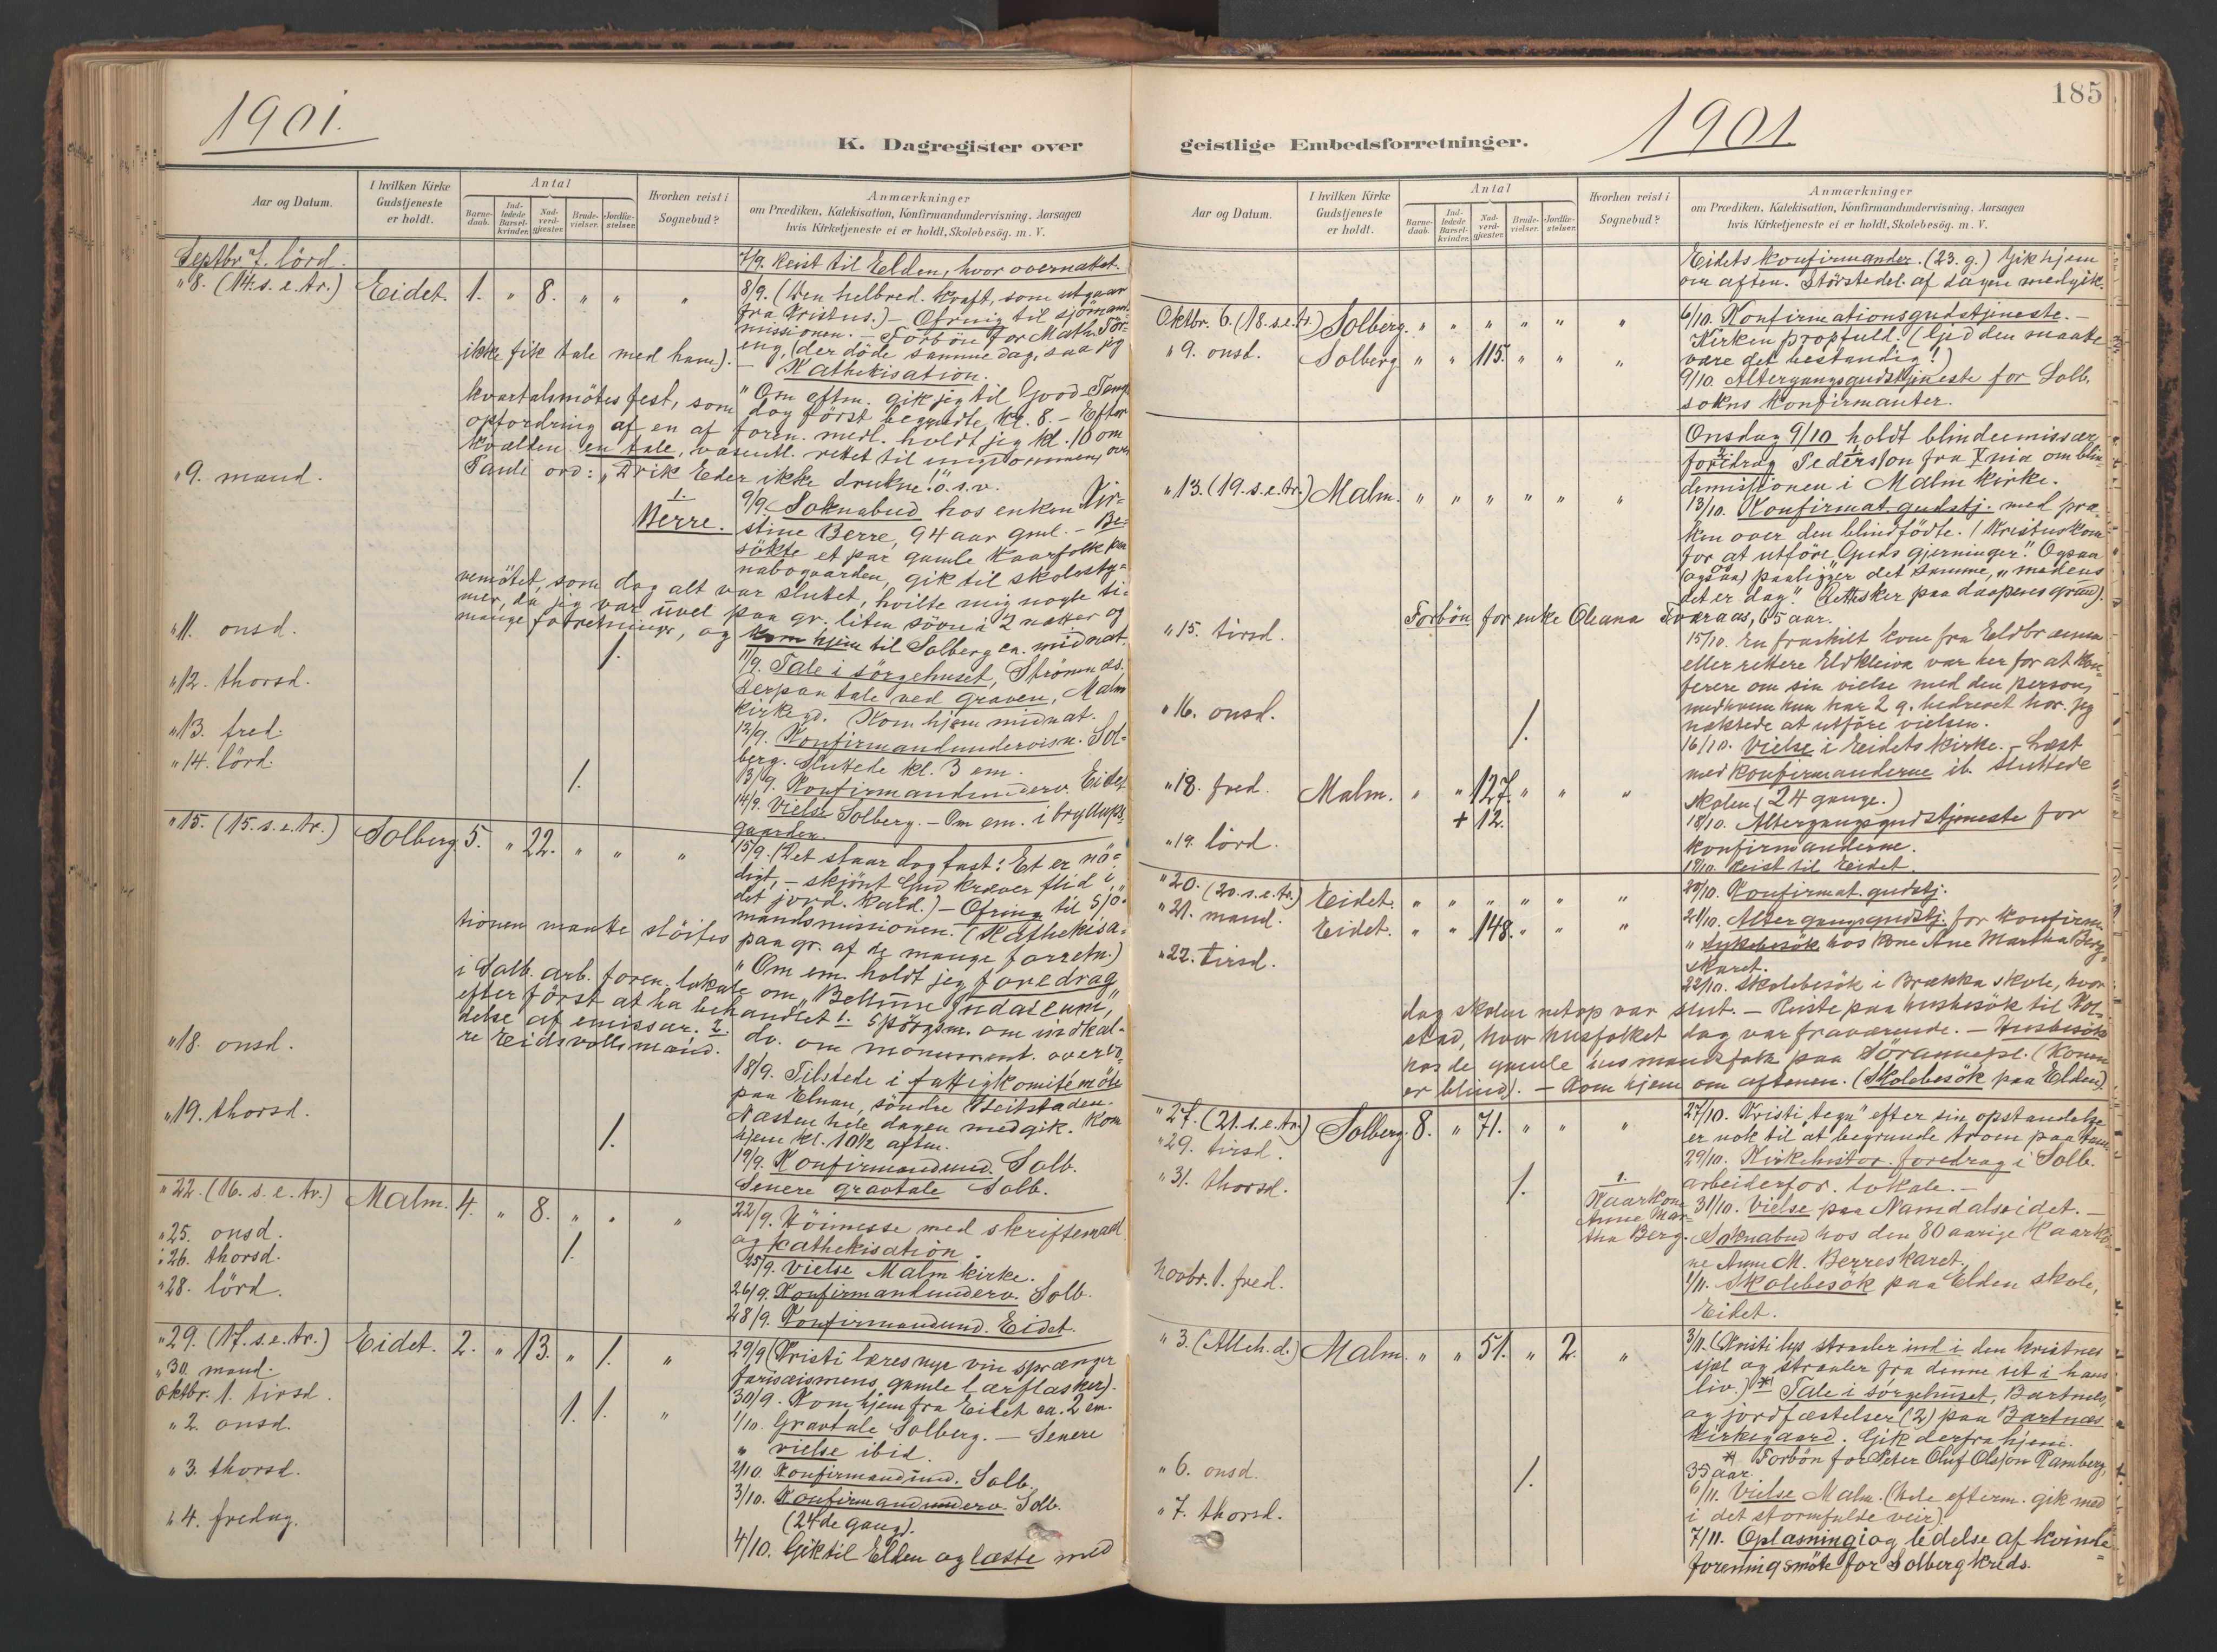 1901.
K. Dagregister over
Aar og Datum.
I hvilken Kirke Gudstjeneste er holdt.
Antal
Barne-daab.
Ind-ledede Barsel-kvinder.
Nad-verd-gjester.
Brude-vielser.
Jordfæ-stelser.
Hvorhen reist i Sognebud?
Anmærkninger
om Prædiken, Katekisation, Konfirmandundervisning, Aarsagen
hvis Kirketjeneste ei er holdt, Skolebesög. m. V.
Septbr 7. lörd.
7/9. Reist til Elden, hvor overnattet.
" 8. (14. s. e. tr.) Eidet. 1. " 8. " " "
8/9. (Den helbred. kraft, som utgaar
fra Kristus.) – Ofring til sjömands-
missionen. – Forbön for Math.
eng, (der döde samme dag, saa jeg
ikke fik tale med ham). – Kathekisation.
" Om eftm. gik jeg til Good-Temp.
kvartalsmötes fest, som dog först begyndte kl. 8. – Efter
opfordring af en af foren. medl. holdt jeg kl. 10 om
kvælden en tale, væsentl. rettet til ungdommen, over
Pauli ord: "Drik Eder ikke drukne! o. s. v.
" 9. mand.
1. Berre.
9/9. Soknabud hos enken Kir-
stine Berre, 94 aar gml. – Be-
sökte et par gamle kaarfolk paa
nabogaarden, gik til skolesty-
remötet, som dog alt var slutet, hvilte mig nogle ti-
mer, da jeg var uvel paa gr. liten sövn i 2 nætter og
mange forretninger, og kom hjem til Solberg ca. midnat.
" 11. onsd. 1.
11/9. Tale i sörgehuset, Strömnæs.
Derpaa tale ved graven, Malm
kirkegd. Kom hjem midnat.
" 12. thorsd.
12/9. Konfirmandundervisn. Sol-
berg. Sluttede kl. 3 em.
" 13. fred.
13/9. Konfirmandunderv. Eidet
" 14. lörd. 1.
14/9. Vielse Solberg. – Om em. i bryllups-
gaarden.
" 15. (15. s. e. tr.) Solberg 5. " 22. " " "
15/9. (Det staar dog fast: Et er nö-
digt, – skjönt Gud kræver flid i
det jord. kald.) – Ofring til sjö-
mandsmissionen. (Kathekisa-
tionen maatte slöifes paa gr. af de mange forretn.)
" Om em. holdt jeg foredrag
i Solb. arb. foren. lokale om "Bellum Judaicum,"
efter först at ha behandlet 1. spörgsm. om indkal-
delse af emissær. 2. do. om monument. over vo-
re Eidsvollsmænd.
" 18. onsd.
18/9. Tilstede i fattigkomitémöte
paa Elnan, söndre Beitstaden.
Næsten hele dagen medgik. Kom
hjem kl. 10 1/2 aften.
" 19. thorsd. 1.
19/9. Konfirmandund. Solb.
Senere gravtale Solb.
" 22. (16. s. e. tr.) Malm. 4. " 8. " " "
22/9. Höimesse med skriftemaal
og kathekisation.
" 25. onsd. 1.
25/9. Vielse Malm kirke.
" 26. thorsd.
26/9. Konfirmandunderv. Solb.
" 28. lörd.
28/9. Konfirmandund. Eidet.
" 29. (17. s. e. tr.) Eidet. 2. " 13. " 1. "
29/9 (Kristi læres nye vin sprænger
farisæismens gamle lærflasker).
" 30. mand.
30/9. Kom hjem fra Eidet ca. 2 em.
Oktbr. 1. tirsd. 1. 1. "
1/10. Gravtale Solberg. – Senere
" vielse ibid.
" 2. onsd.
2/10. Konfirmandund. Solb.
" 3. thorsd.
3/10. Konfirmandunderv. Solb.
(24de gang).
" 4. fredag.
4/10. Gik til Elden og læste med
185
1901.
geistlige Embedsforretninger.
Aar og Datum.
I hvilken Kirke Gudstjeneste er holdt.
Antal
Barne-daab.
Ind-ledede Barsel-kvinder.
Nad-verd-gjester.
Brude-vielser.
Jordfæ-stelser.
Hvorhen reist i Sognebud?
Anmærkninger
om Prædiken, Katekisation, Konfirmandundervisning. Aarsagen
hvis Kirketjeneste ei er holdt, Skolebesög. m. V.
Eidets konfirmander. (23. g.) Gik hjem
om aften. Störstedel. af dagen medgik.
Oktbr. 6. (18. s. e. tr.) Solberg. " " " " " "
6/10. Konfirmationsgudstjeneste. –
Kirken propfuld! (Gid den maatte
være det bestandig!)
" 9. onsd. Solberg " " 115. " " "
9/10. Altergangsgudstjeneste for Solb.
sokns konfirmanter.
Onsdag 9/10 holdt blindemissær
foredrag Pedersson fra om blin-
demissionen i Malm kirke.
" 13. (19. s. e. tr.) Malm. " " " " " "
13/10. Konfirmat. gudstj. med præ-
ken over den blindfödte. (Kristus kom
for at utföre Guds gjerninger." Ogsaa
(ogsaa) paaligger det samme, "medens
det er dag." (Ættesker paa daapens grund).
Forbön for enke Oleana Tværaas, 65 aar.
" 15. tirsd.
15/10. En fraskilt kone fra Eldbrænna
eller rettere Eldkleiva var her for at kon-
ferere om sin vielse med den person,
med hvem hun har 2 g. bedrevet hor. Jeg
nektede at utföre vielsen.
" 16. onsd. 1.
16/10. Vielse i Eidets kirke. – Læst
med konfirmanderne ib. Sluttede
skolen (24 gange.)
" 18. fred. Malm. " " 127. " " "
+ 12.
18/10. Altergangsgudstjeneste for
konfirmanderne.
" 19. lörd.
19/10. Reist til Eidet.
" 20. (20. s. e. tr.) Eidet. " " " " " "
20/10. Konfirmat. gudstj.
" 21. mand. Eidet. " " 148. " " "
21/10. Altergangsgudstj. for konfirm.
" Sykebesök hos kone Ane Martha Berg-
skaret.
" 22. tirsd.
22/10. Skolebesök i Brækka skole, hvor
dog skolen netop var slut. – Reiste paa husbesök til
stad, hvor husfolket dog var fraværende. – Husbesök
hos de gamle husmandsfolk paa (Konen
er blind). – Kom hjem om aftenen. (Skolebesök paa Elden).
" 27. (21. s. e. tr.) Solberg. 8. " 71. " " "
27/10. Kristi "tegn" efter sin opstandelse
er nok til at begrunde troen paa ham
" 29. tirsd.
29/10. Kirkehistor. foredrag i Solb.
arbeiderfor. lokale. –
" 31. thorsd. 1.
1. Kaarkone Anne Mar-tha Berg.
31/10. Vielse paa Namdalseidet. –
Soknabud hos den 80 aarige kaarko-
ne Anne M. Berreskaret.
Novbr. 1. fred.
1/11. Skolebesök paa Elden skole,
Eidet.
" 3. (Alleh. d.) Malm. " " 51. " 2. "
3/11. (Kristi lys straaler ind i den kristnes
sjæl og straaler fra denne ut i hans
liv.) *) Tale i sörgehuset, Bartnes,
og jordfæstelser (2) paa Bartnæs
kirkegaard. Gik derfra hjem.
*) Forbön for Peter Oluf Olsson Ramberg,
35 aar.
" 6. onsd. 1.
6/11. Vielse Malm. (Hele efterm. gik med
i det stormfulde veir).
" 7. thorsd.
7/11. Oplæsning i og ledelse af kvinde-
foreningsmöte for Solberg kreds.